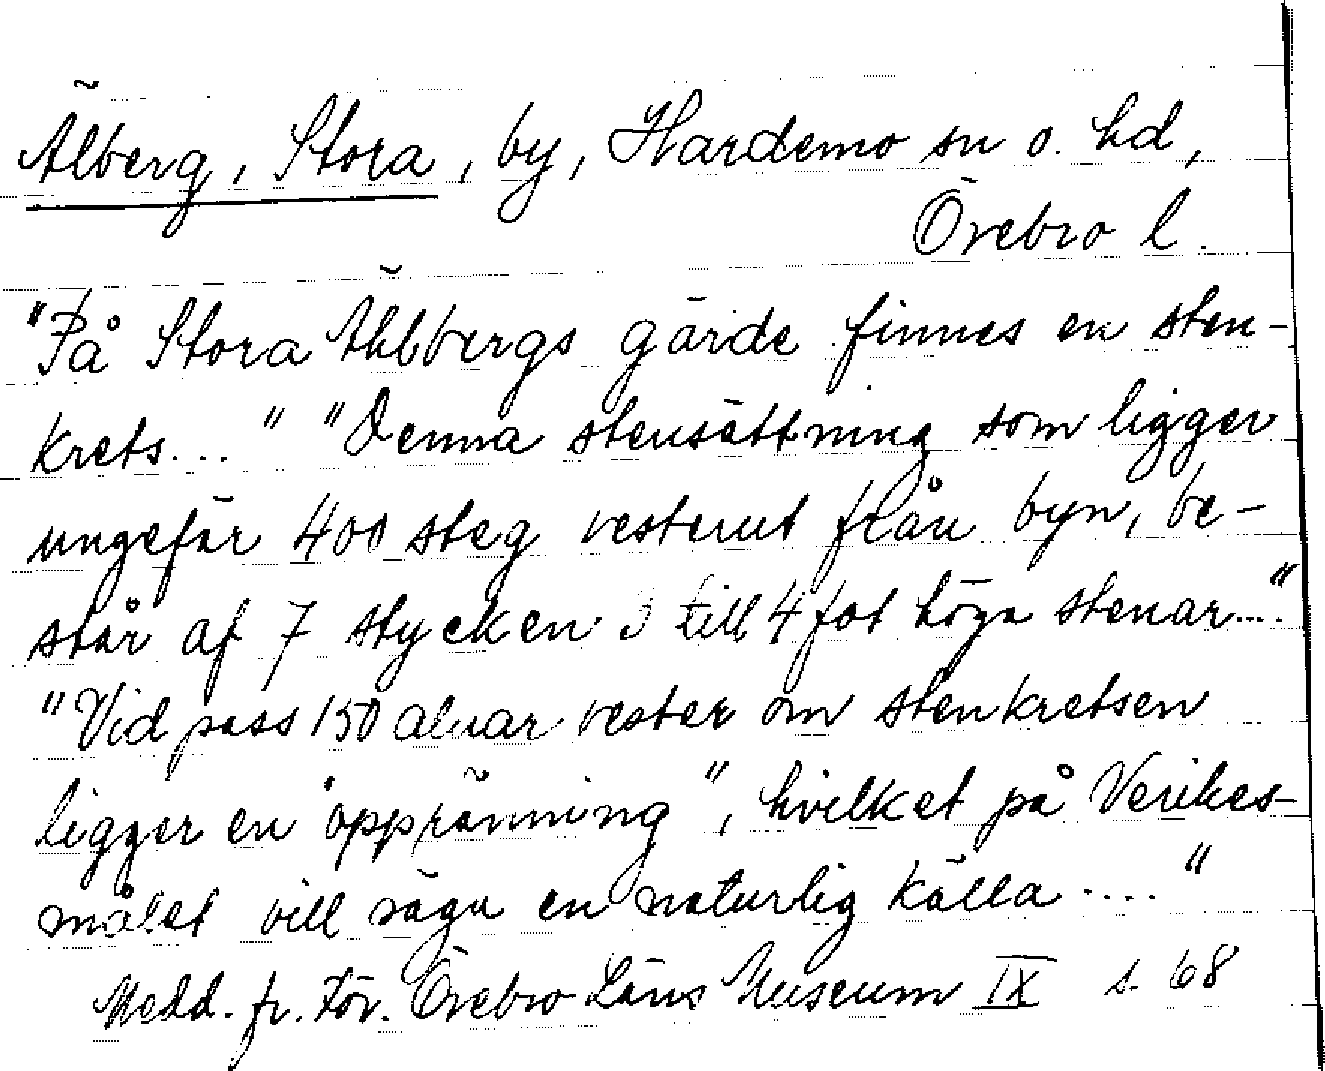 Älberg, Stora, by, Hardemo sn o. hd,
Örebro l.
"På Stora Ählbergs gärde finnes en sten-
krets..." "Denna stensättning som ligger
ungefär 400 steg vesterut från byn, be-
står af 7 stycken 3 till 4 fot höga stenar..."
"Vid pass 150 alnar vester om stenkretsen
ligger en "oppränning", hvilket på Verikes-
målet vill säga en naturlig källa ...."
Medd. fr. För. Örebro Läns Museum IX s. 68